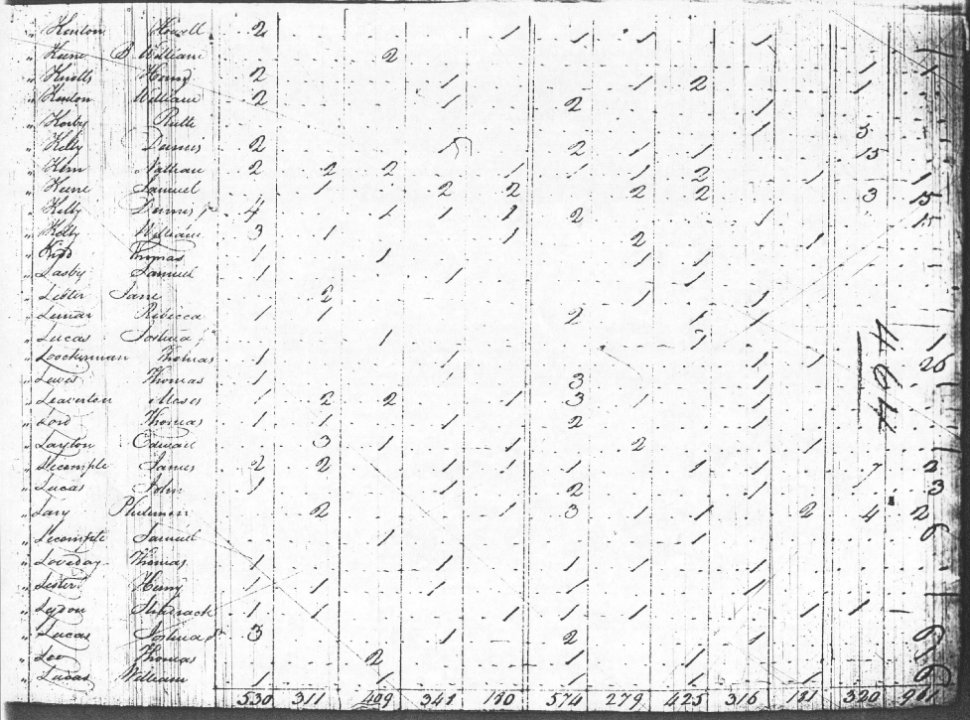 " Hinton Howell 2 1 1 1 1
" Keene B William 2 1 1
" Knotts Henry 2 1 1 2 1
" Hinton William 2 1 2 1
" Ruth 1 5
" Kelly Dennis 2 2 1 1 15
" Kem Nathan 2 2 2 1 1 1 2 1 1
" Keene Samuel 1 2 2 2 2 3 15
" Kelly Dennis Jr 4 1 1 1 2 1 5
" Kelly William 3 1 1 2 1
" Kidd Thomas 1 1 1 1
" Lasby Samuel 1 1 1
" Lister Jane 2 1 1
" Lunar Rebecca 1 1 2 1 1
" Lucas Joshua Jr 1 2 1
" Loockerman Thomas 1 1 1 1 26
" Lewis Thomas 1 3 1
" Leaverton Moses 1 2 2 1 3 1 1
" Lord Thomas 1 1 1 2 1
" Layton Edward 3 1 1 2 1
" Lecompte James 2 2 1 1 1 1 1 7 2
" Lucas John 1 1 2 1 3
" Lary Philemon 2 1 3 1 1 2 4 2
" Lecompte Samuel 1 1 6
" Loveday Thomas 1 1 1 1 1
" Lister Henry 1 1 1 1 1
" Lydon Shadrach 1 1 1 1 1 1 1 1
" Lucas Joshua Sr 3 1 2 1
" Lee Thomas 2 1 1
" Lucas William 1 1 1 1 1
530 311 409 341 180 574 279 425 316 181 320 961
464